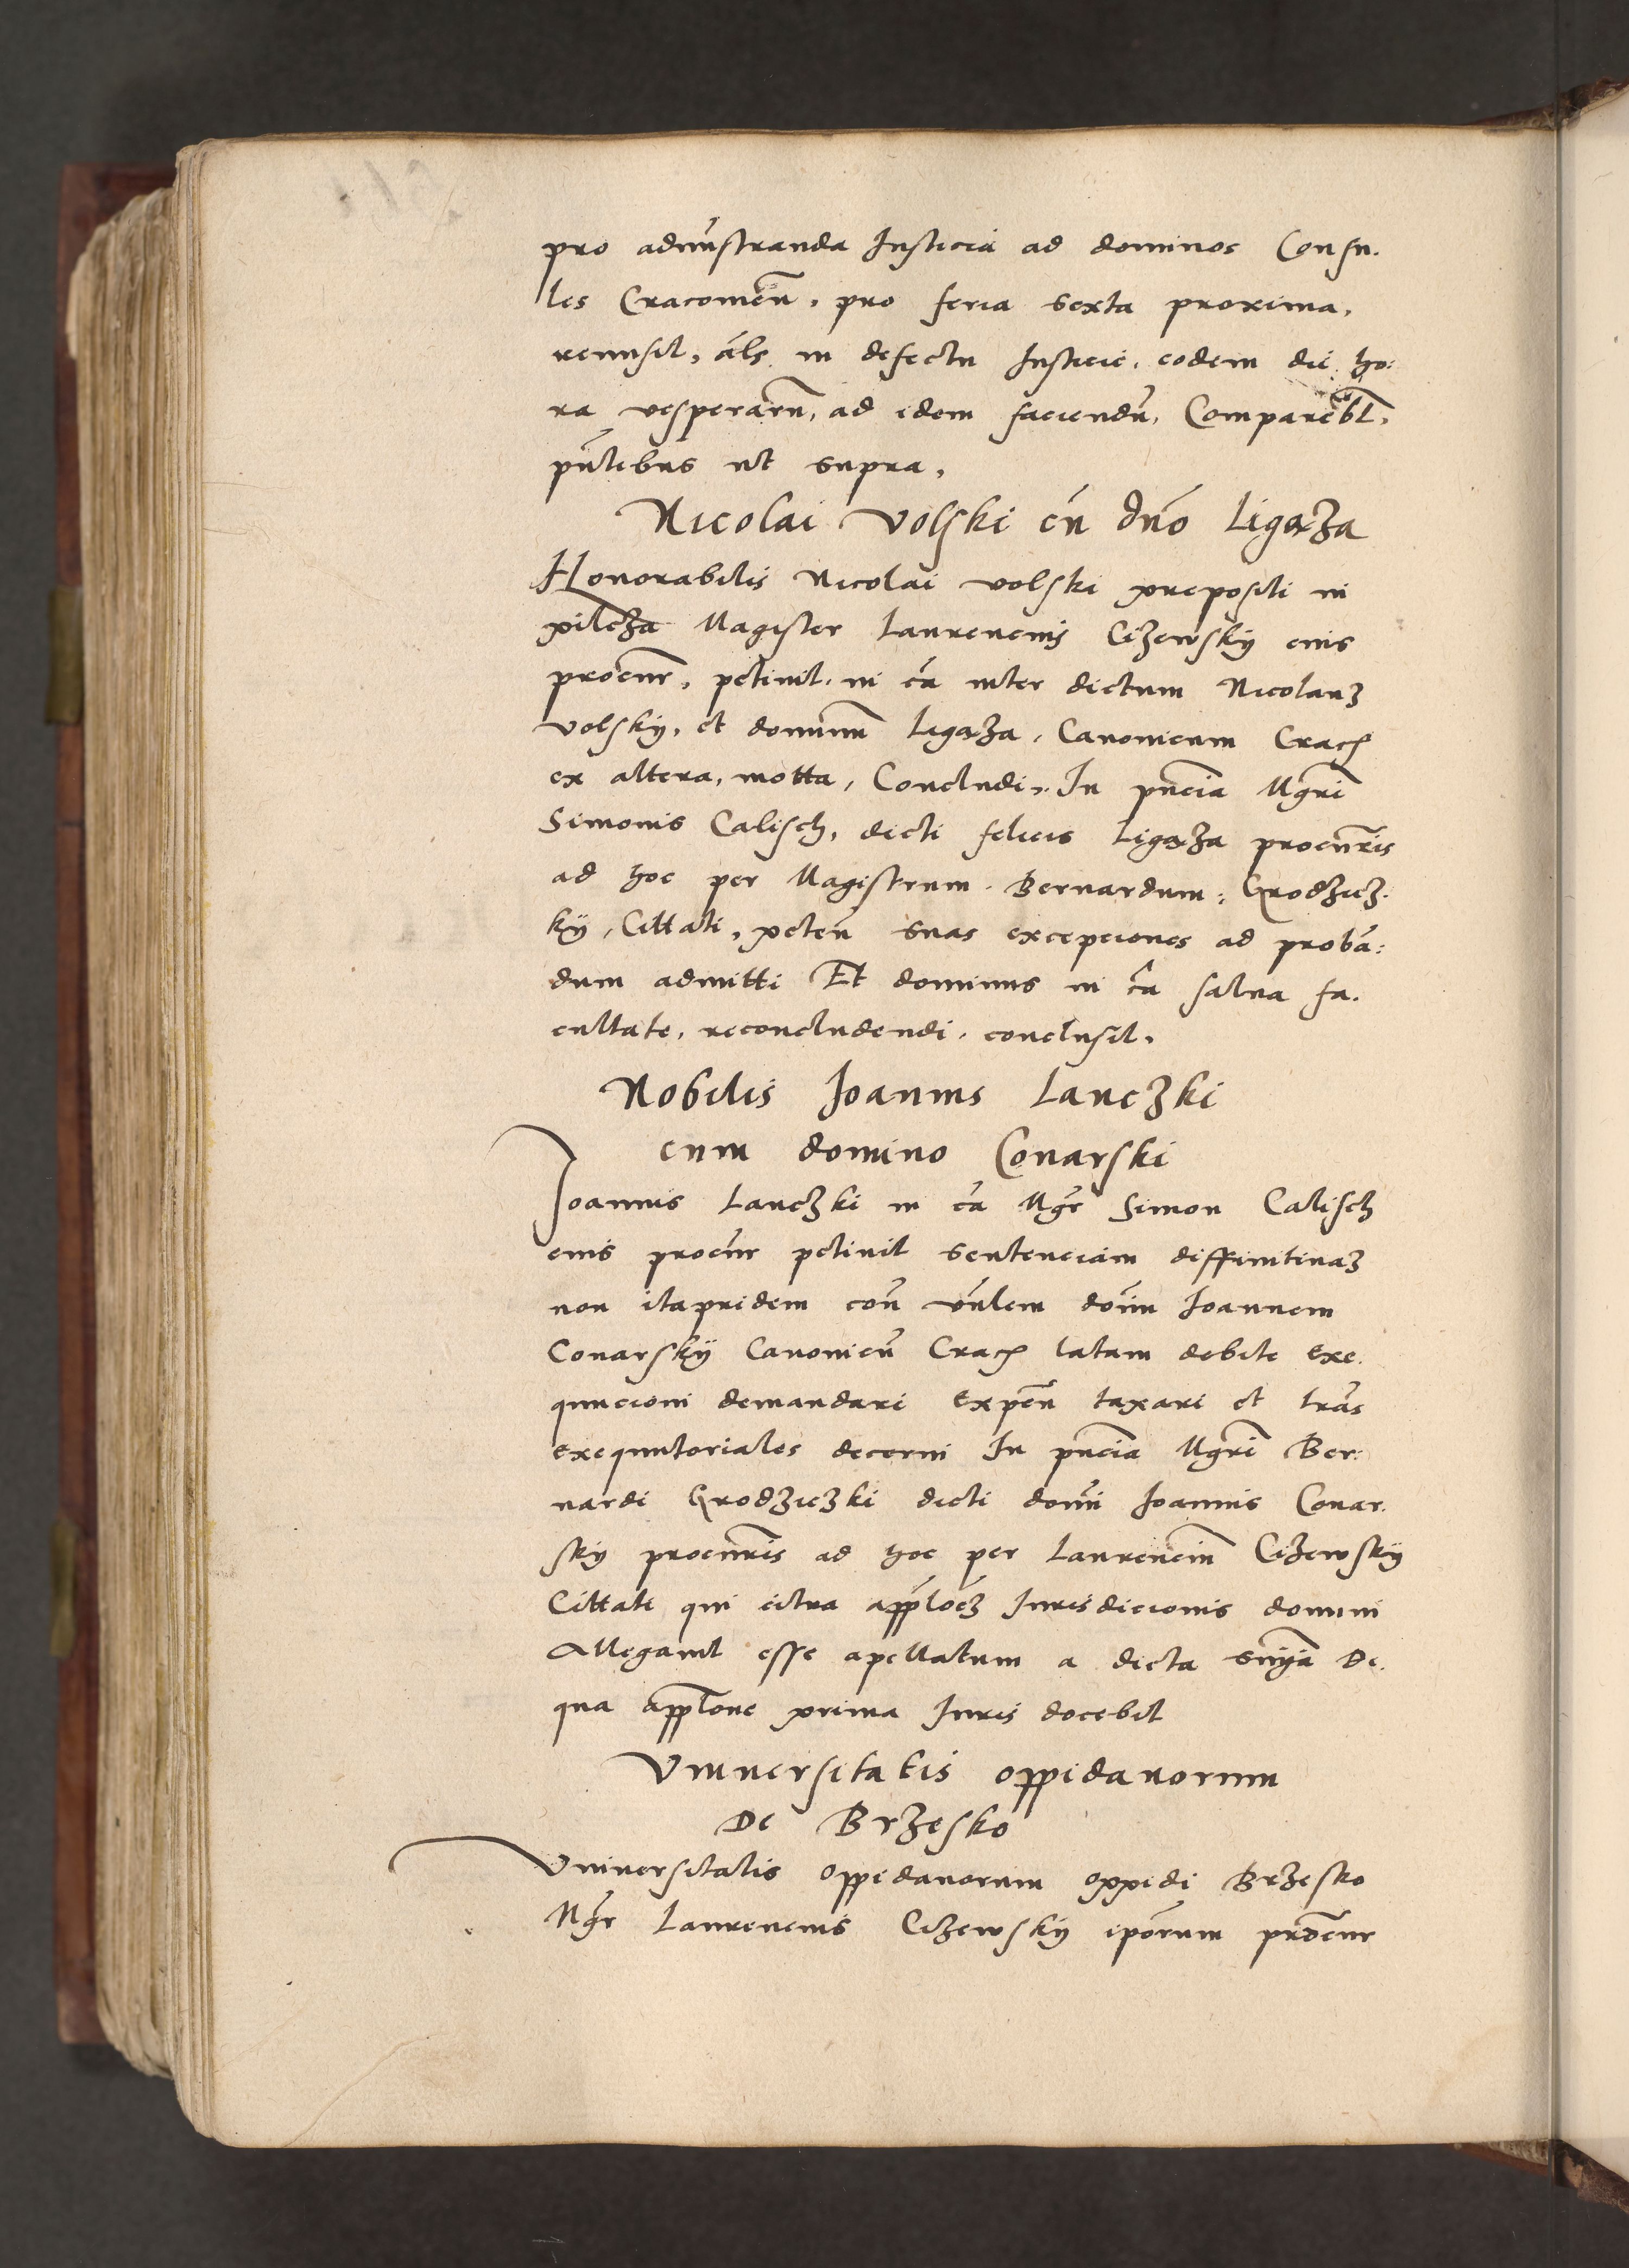 pro admĩstranda Justicia ad dominos Consu-
les Cracouieñ. pro feria sexta proxima,
remisit, als in defectu Justicie, eodem die ho:
ra vesperarũ, ad idem faciendũ, Comparebt,
pñtibus ut supra,
Nicolai Volski cũ dño Ligęza
Honorabilis Nicolai volski prepositi in
pilcza Magister Laurencius Cizewsky eius
procur, petiuit in cã inter dictum Nicolauʒ
volsky, et dominum Ligęza, Canonicum Crac
ex altera, motta, Concludi, In pñcia Mgri
Simonis Calisch, dicti felicis Ligęza procuris
ad hoc per Magistrum Bernardum, Grodzicz-
ky, Cittati, peteñ suas excepciones ad probã:
dum admitti Et dominus in cã salua fa-
cultate, reconcludendi, conclusit,
Nobilis Joannis Lanczki
cum domino Conarski
Joannis Lanczki in cã Mgr Simon Calisch
eius procur petiuit sentenciam diffinitiuaʒ
non itapridem con vñlem doim Joannem
Conarsky Canonicũ Crac latam debite exe-
qucioni demandari expeñ taxari et lrãs
exequutoriales decerni In pñcia Mgri Ber-
nardi Grodziczki dicti domi Joannis Conar-
sky procuris ad hoc per Laurencium Cizewsky
Cittati qui citra applocʒ Jurisdicionis domini
Allegauit esse apellatum a dicta snia De
qua applone prima Juris docebit
Vniuersitatis oppidanorum
De Brzesko
Vniuersitatis oppidanorum oppidi Brzesko
Mgr Laurencius Cizewsky iporum procur